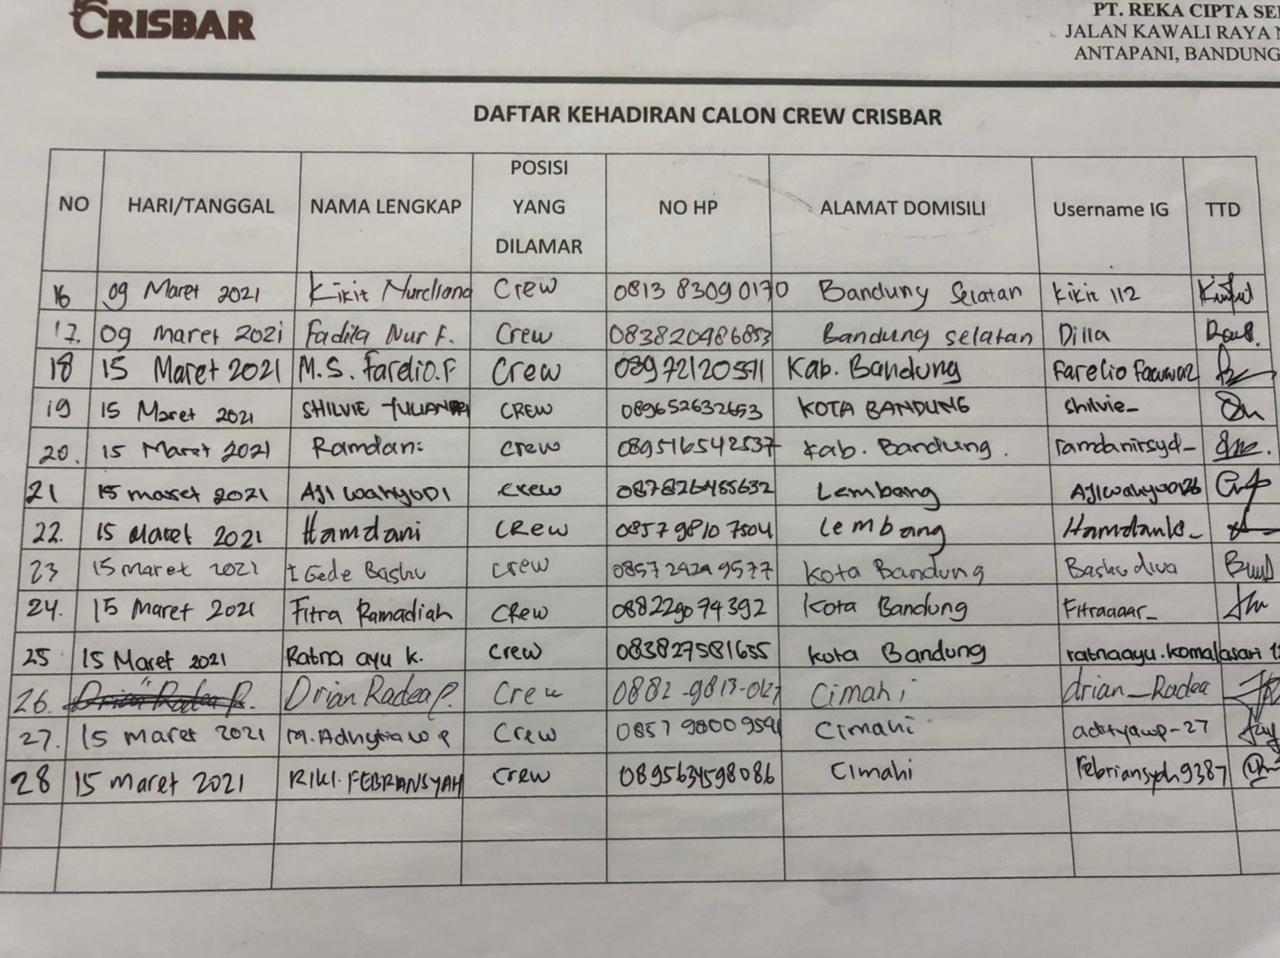 CRISBAR
PT. REKA CIPTA SE
JALAN KAWALI RAYA N
ANTAPANI, BANDUNG
DAFTAR KEHADIRAN CALON CREW CRISBAR
NO HARI/TANGGAL NAMA LENGKAP POSISI YANG DILAMAR NO HP ALAMAT DOMISILI Username IG TTD
16 09 Maret 2021 Kikit Nurcliana Crew 0813 8309 0170 Bandung Selatan Kikit 112
17. 09 maret 2021 Fadila Nur F. Crew 083820986853 Bandung selatan Dilla
18 15 Maret 2021 M.S. Farelio.F Crew 089721205571 Kab. Bandung Farelio
19 15 Maret 2021 SHILVIE YULIANDRI CREW 089652632653 KOTA BANDUNG Shilvie_
20. 15 Maret 2021 Ramdani Crew 089516542537 Kab. Bandung. ramdanirsyd_
21 15 maret 2021 AJI WAHYUDI crew 087826455632 Lembang
22. 15 Maret 2021 Hamdani CREW 0857 9810 7504 Lembang Hamdanks_
23 15 maret 2021 I Gede Bashu crew 0857 2424 9577 Kota Bandung Bashudiva
24. 15 Maret 2021 Fitra Ramadiah CRew 088229074392 Kota Bandung Fitraaaar_
25 15 Maret 2021 Ratna ayu k. Crew 083827581655 Kota Bandung ratnaayu.komalasari
26. Drian Radea P. Drian Radea P. Crew Cimahi drian_Radea
27. 15 maret 2021 M. Adhytia W P Crew 0857 9800 9591 Cimahi adityawp-27
28 15 maret 2021 RIKI. FEBRIANSYAH Crew 0895634598086 Cimahi Febriansyah9387